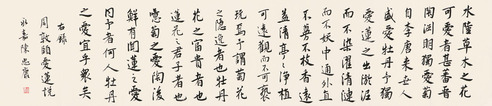 水陸草木之花
可愛者甚蕃晉
陶淵明獨愛菊
自李唐來世人
盛愛牡丹予獨
愛蓮之出淤泥
而不染濯清漣
而不妖中通外直
不蔓不枝香遠
益清亭亭淨植
可遠觀而不可褻
玩焉予謂菊花
之隱逸者也牡丹
花之富貴者也
蓮花之君子者也
噫菊之愛陶後
鮮有聞蓮之愛
同予者何人牡丹
之愛宜乎眾矣
右錄
周敦頤愛蓮說
永嘉陳忠康